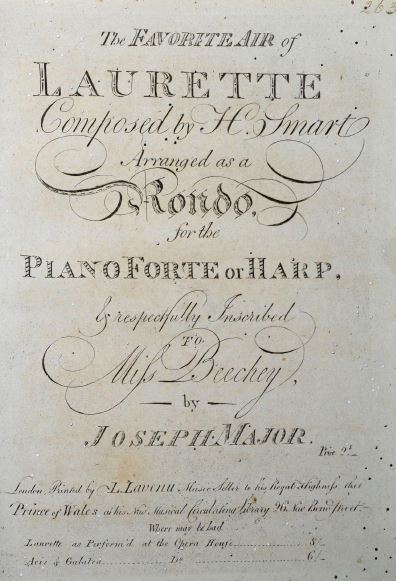 363
The FAVORITE AIR of
LAURETTE
Composed by H. Smart
Arranged as a
Rondo,
for the
PIANO FORTE or HARP,
& respectfully Inscribed
TO
Miſs Beechey,
— by —
JOSEPH MAJOR.
Price 2s.
London, Printed by L. Lavenu Music Seller to his Royal Highneſs the
Prince of Wales at his New Musical Circulating Library 26 New Bond Street
Where may be had
Laurette as Perform'd at the Opera House
Acis & Galatea